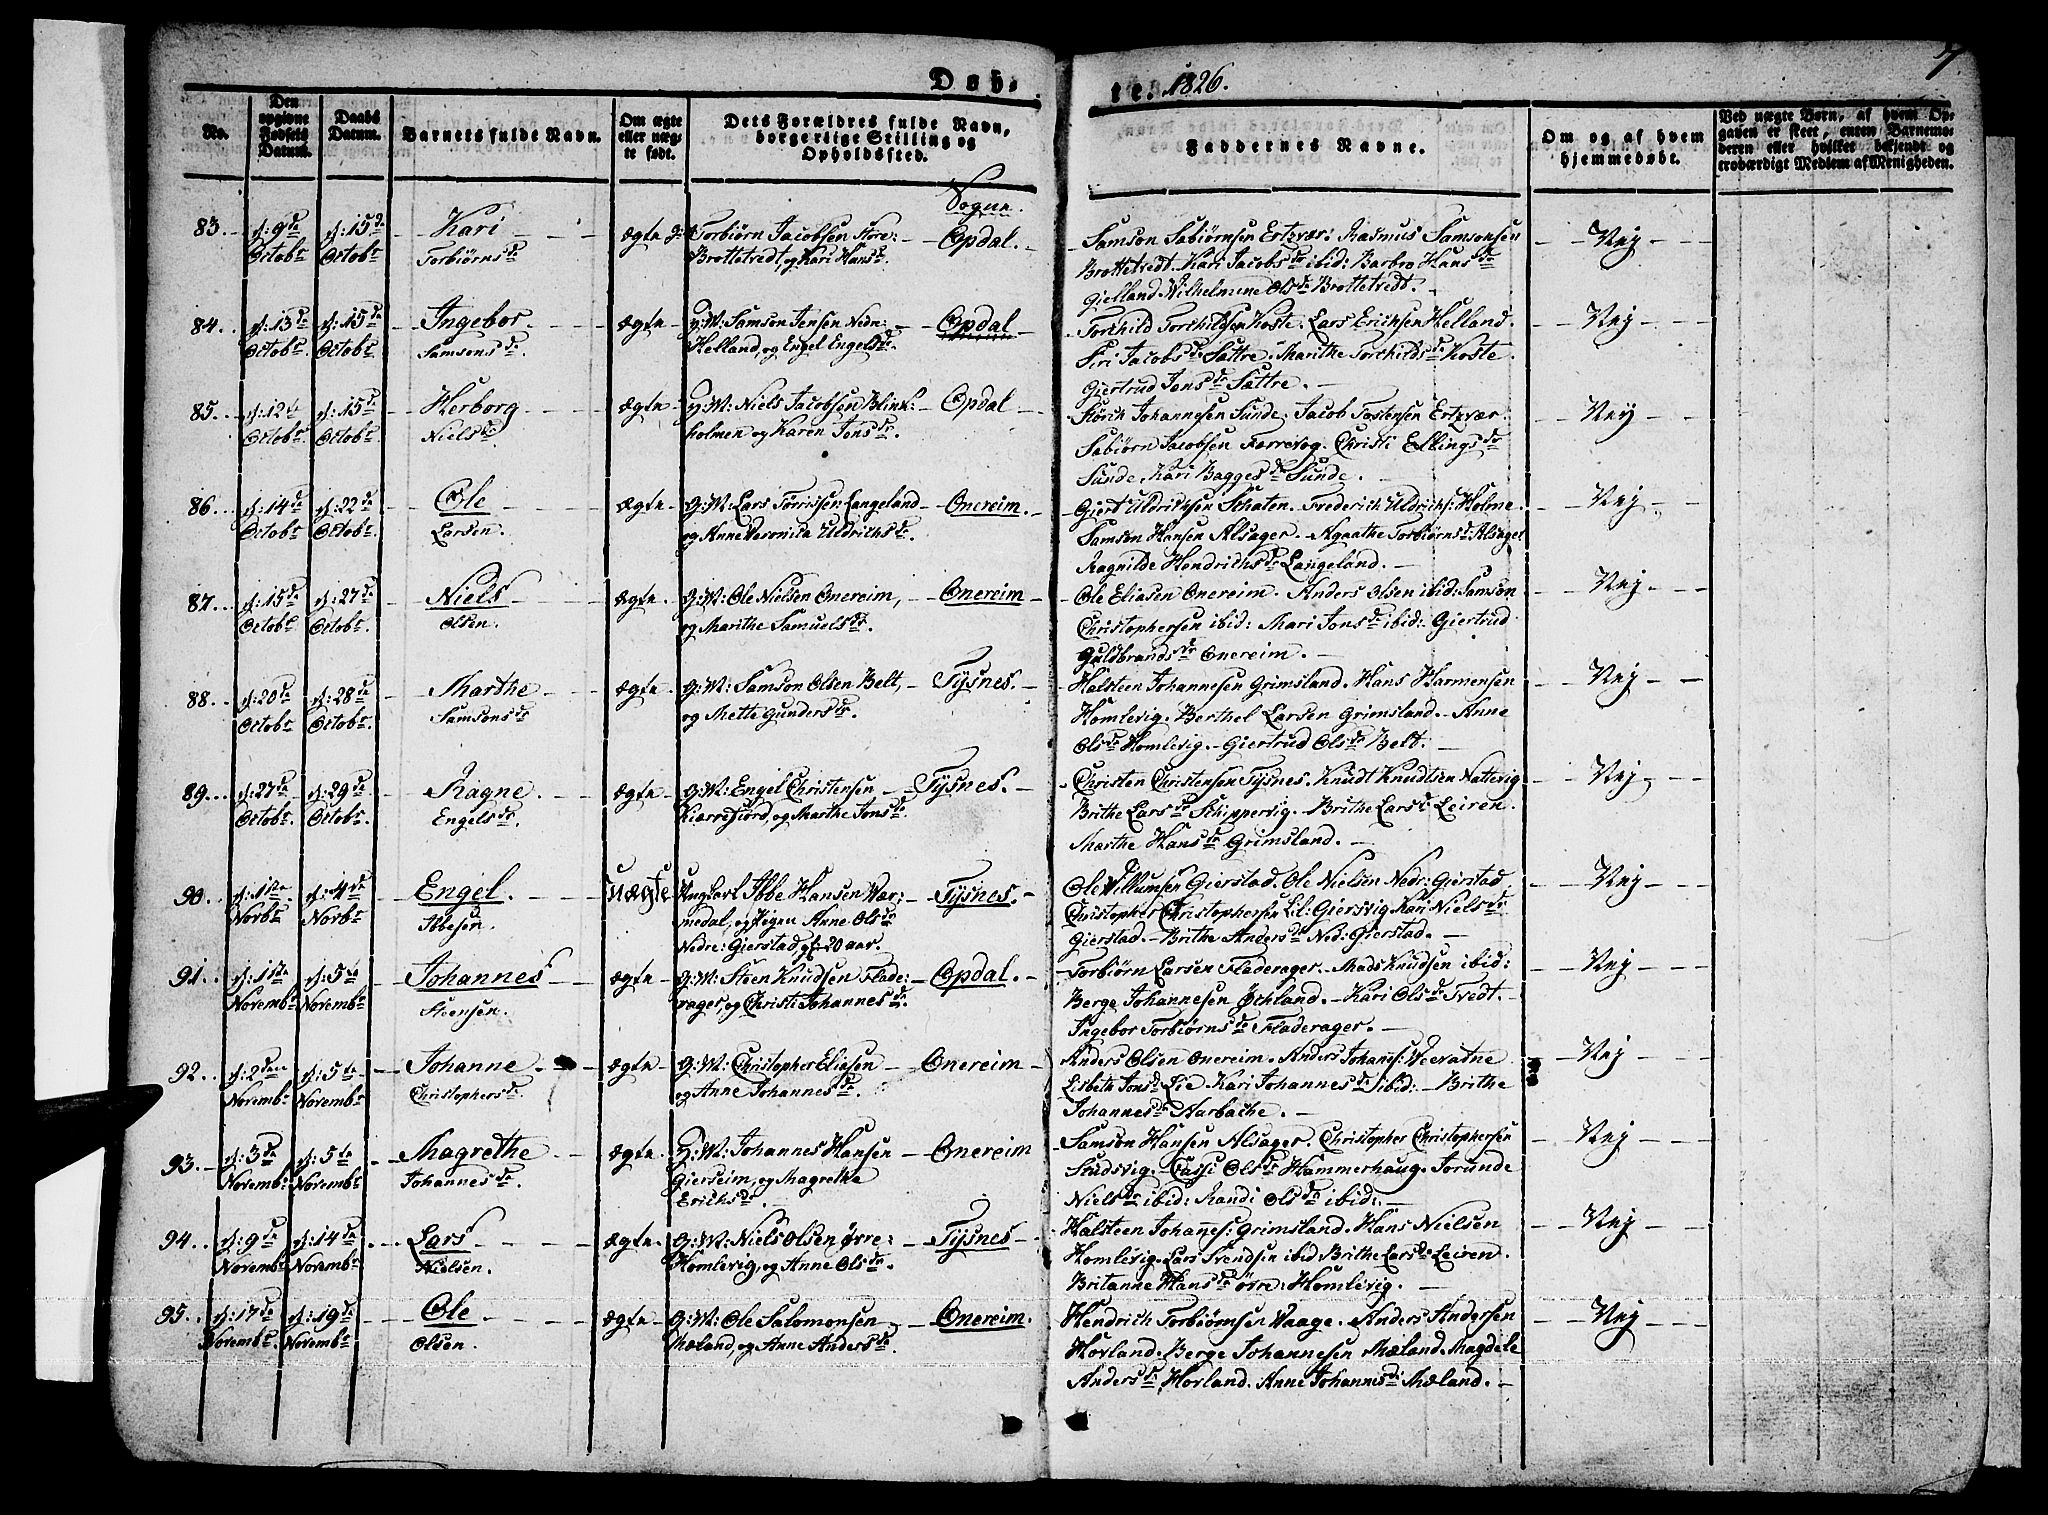 Døb-
te. 1826.
7
No.
Den opgivne Fødsels Datum.
Daabs Datum.
Barnets fulde Navn.
Om ægte eller uægte født.
Dets Forældres fulde Navn, borgerlige Stilling og Opholdssted.
Faddernes Navne.
Om og af hvem hjemmedøbt.
Ved uægte Børn, af hvem Opgaven er skeet, enten Barnemoderen eller hvilket bekjendt og troværdigt Medlem af Menigheden.
Sogne.
83. d: 9de Octobr d: 15de Octobr Kari Torbiørnsdr ægte Torbiørn Jacobsen Store: Brottetvedt, og Kari Hansdr Opdal.
Samson Sabiørnsen Ertzvær: Rasmus Samsonsen
Brottetvedt. Kari Jacobsdr ibid: Barbro Hansdr
Gielland. Wilhelmine Olsdr Brottetvedt.
Nej
84. d: 13de Octobr d: 15de Octobr Ingebor Samsonsdr. ægte G: M: Samson Jensen Nedr: Helland, og Engel Engelsdr. Opdal
Torchild Torchildsen Koste. Lars Erichsen Helland.
Siri Jacobsdr Sættre. Marithe Torchildsdr Koste.
Giertrud Jonsdr Sættre.
Nej
85. d: 12te Octobr. d: 15de Octobr. Herborg Nielsdr. ægte G: M: Niels Jacobsen Blink: holmen og Karen Jonsdr. Opdal
Størch Johannesen Sunde. Jacob Tostensen Ertzvær.
Sabiørn Jacobsen Færrevog. Christi Ellingsdr
Sunde. Kari Baggesdr Sunde.
Nej
86. d: 14de Octobr d: 22de Octobr. Ole Larsen. ægte G: M: Lars Torrisen Langeland og Anne Veronica Uldrichsdr. Onereim.
Giert Uldrichsen Skaten. Frederich Uldrichs: Holme.
Samson Hansen Alsager. Agaathe Torbiørnsdr Alsager
Ragnilde Hendrichsdr Langeland.
Nej
87. d: 15de Octobr d: 27de Octobr. Niels Olsen. ægte. G: M: Ole Nielsen Onereim, og Marithe Samuelsdr. Onereim
Ole Eliasen Onereim. Anders Olsen ibid: Samson
Christophersen ibid: Mari Jonsdr ibid: Giertrud
Guldbrandsdr Onereim.
Nej
88. d: 20de Octobr d: 28de Octobr. Marthe Samsonsdr ægte G: M: Samson Olsen Belt, og Mette Gundersdr. Tysnes.
Halsteen Johannesen Grimsland. Hans Harmensen
Homlevig. Berthel Larsen Grimsland. Anne
Olsdr Homlevig. Giertrud Olsdr Belt.
Nej
89. d: 27de Octobr. d: 29de Octobr. Ragne. Engelsdr. ægte G: M: Engel Christensen Kierrefiord, og Marthe Jonsdr. Tysnes.
Christen Christensen Tysnes. Knudt Knudtsen Natevig
Brithe Larsdr Schippervig. Brithe Larsdr Leiren.
Marthe Hansdr Grimsland.
Nej
90. d: 1ste Novbr. d: 4de Novbr Engel. Ibbesen. uægte Ungkarl Ibbe Hansen Vær: nedal, og Pigen Anne Olsdr Nedre: Gierstad, 20 aar. Tysnes.
Ole Villumsen Gierstad. Ole Nielsen Nedr: Gierstad.
Christopher Christophersen Lil: Giersvig. Kari Nielsdr
Gierstad. Brithe Andersdr Ned: Gierstad.
Nej
91. d: 1ste Novembr d: 5te Novembr Johannes Steensen. ægte G: M: Steen Knudsen Flade: rager, og Christi Johannesdr. Opdal.
Torbiørn Larsen Fladerager. Mads Knudsen ibid:
Berge Johannesen Øchland. Kari Olsdr Tvedt.
Ingebor Torbiørnsdr Fladerager.
Nej
92. d: 2den Novembr d: 5te Novembr Johanne Christophersdr. ægte G: M: Christopher Eliasen og Anne Johannesdr. Onereim
Anders Olsen Onereim. Anders Johanes:
Lisbeth Jonsdr Lie. Kari Johannesdr ibid: Brithe
Johannesdr Narbache.
Nej
93. d: 3de Novembr d: 5te Novembr. Magrethe Johannesdr. ægte G: M: Johannes Hansen Gierseim, og Magrethe Erichsdr. Onereim
Samson Hansen Alsager. Christopher Christophersen
Sudsvig. Olsdr Hammerhaug. Jorunde
Nielsdr ibid: Randi Olsdr ibid:
Nej
94. d: 9de Novembr d: 14de Novembr Lars Nielsen. ægte G: M: Niels Olsen Øvre: Homlevig, og Anne Olsdr. Tysnes
Halsteen Johanes: Grimsland. Hans Nielsen
Homlevig. Lars Svendsen ibid Brithe Larsdr Leiren.
Britanne Hansdr Øvre: Homlevig.
Nej
95. d: 17de Novembr. d: 19de Novembr Ole Olsen. ægte G: M: Ole Salomonsen Mæland, og Anne Andersdr. Onereim.
Hendrich Torbiørnsen Vaage. Anders Andersen
Hovland. Berge Johannesen Mæland. Magdele
Andersdr Hovland. Anne Johannesdr Mæland.
Nej